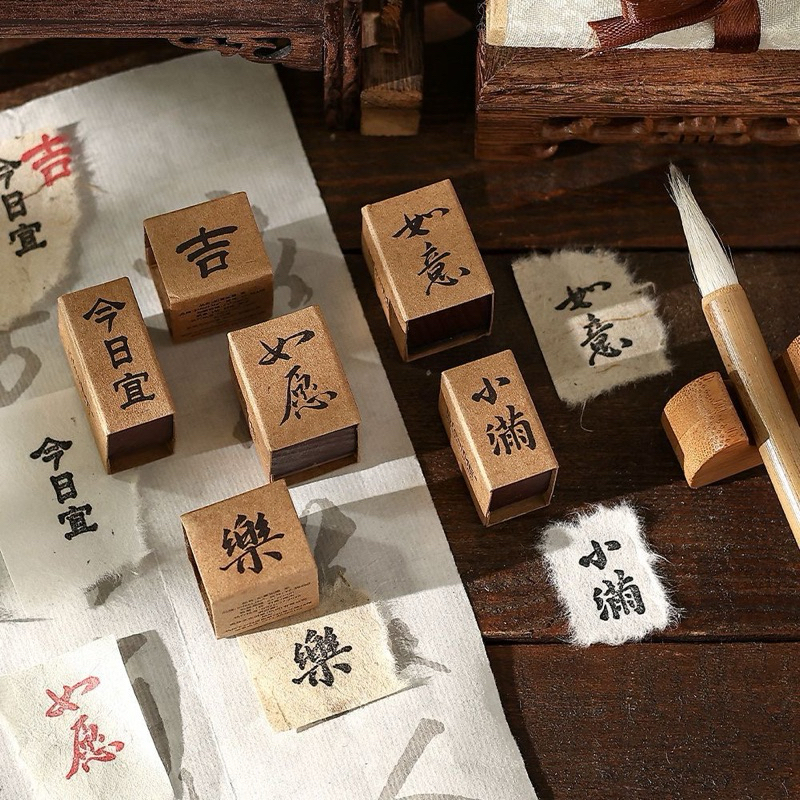 吉
今日宜
吉
如意
今日宜
如愿
如意
小满
今日宜
樂
小满
樂
如愿